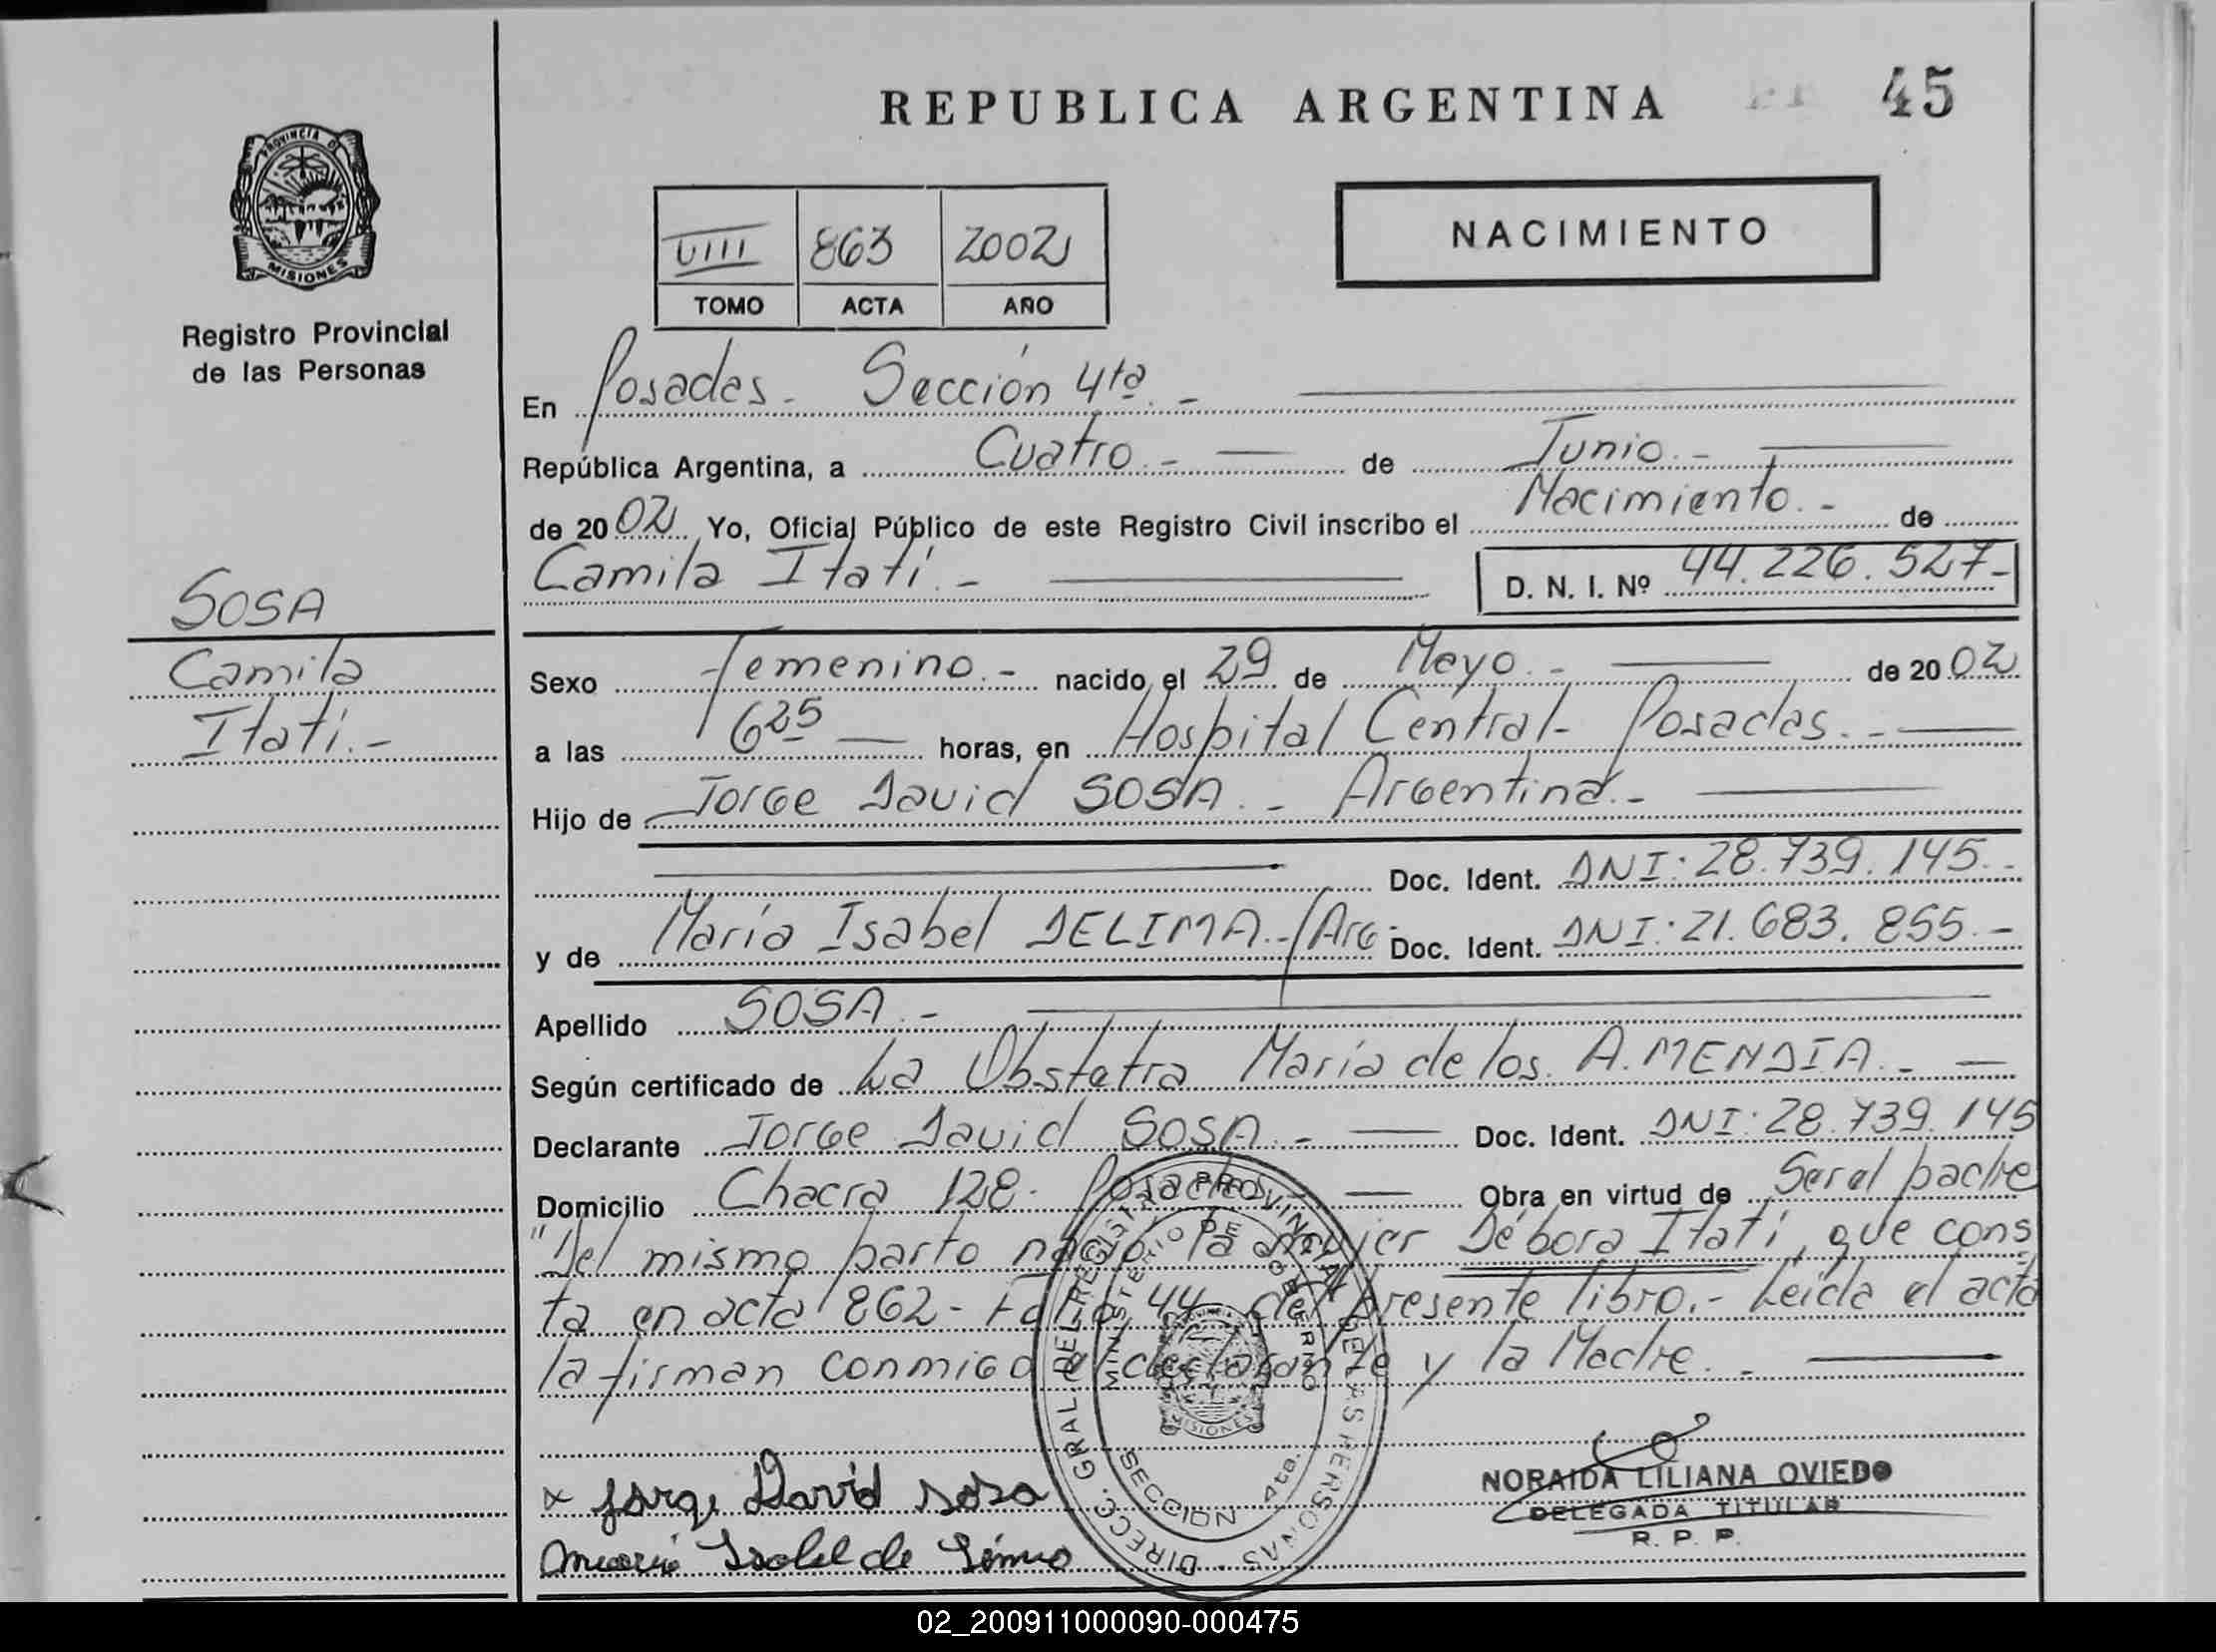 REPUBLICA ARGENTINA 45
PROVINCIA DE
MISIONES
Registro Provincial
de las Personas
VIII 863 2002
TOMO ACTA AÑO
NACIMIENTO
En Posadas - Sección 4ta. -
República Argentina, a Cuatro. - de Junio. -
de 2002 Yo, Oficial Público de este Registro Civil inscribo el Nacimiento. - de
Camila Itatí. - D. N. I. Nº 44.226.527-
SOSA
Camila
Itatí. -
Sexo femenino. - nacido el 29 de Mayo. - de 2002
a las 6 25 horas, en Hospital Central - Posadas. -
Hijo de Jorge David SOSA. - Argentina. -
Doc. Ident. DNI: 28.739.145. -
y de María Isabel DELIMA. - / Arg - Doc. Ident. DNI: 21.683.855. -
Apellido SOSA. -
Según certificado de La Obstetra María de los A. MENDIA. -
Declarante Jorge David SOSA. - Doc. Ident. DNI: 28.739.145
Domicilio Chacra 128 - Posadas - Obra en virtud de Ser el padre
"Del mismo parto nació la mujer Débora Itatí, que cons
ta en acta 862 - Folio 44 del presente libro. - Leída el acta
la firman conmigo el declarante y la Madre. -
x Jorge David sosa
Maria Isabel de Lima
NORAIDA LILIANA OVIEDO
DELEGADA TITULAR
R. P. P.
DIRECC. GRAL. DEL REGISTRO PROVINCIAL DE LAS PERSONAS
MINISTERIO DE GOBIERNO
MISIONES
SECCION 4ta.
02_200911000090-000475